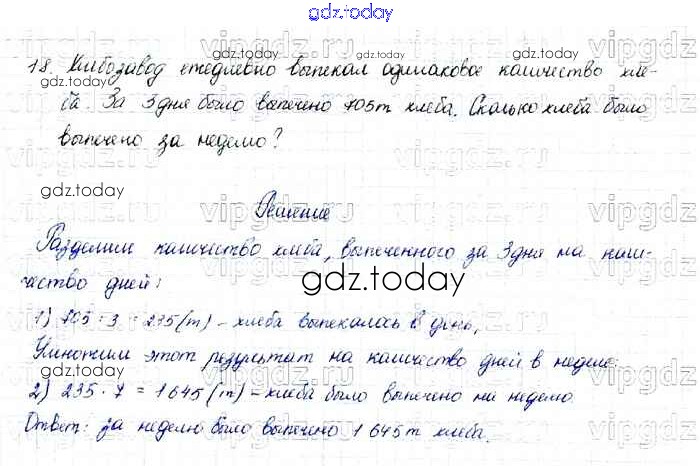 gdz.today
18. Хлебозавод ежедневно выпекал одинаковое количество хле-
ба. За 3 дня было выпечено 705т хлеба. Сколько хлеба было
выпечено за неделю?
Решение
Разделим количество хлеба, выпеченного за 3 дня на коли-
чество дней:
1) 705 : 3 = 235(т) – хлеба выпекалось в день,
Умножим этот результат на количество дней в неделе:
2) 235 · 7 = 1645(т) – хлеба было выпечено за неделю.
Ответ: за неделю было выпечено 1645т хлеба.
gdz.today
gdz.today
gdz.today
gdz.today
gdz.today
gdz.today
gdz.today
vipgdz.ru